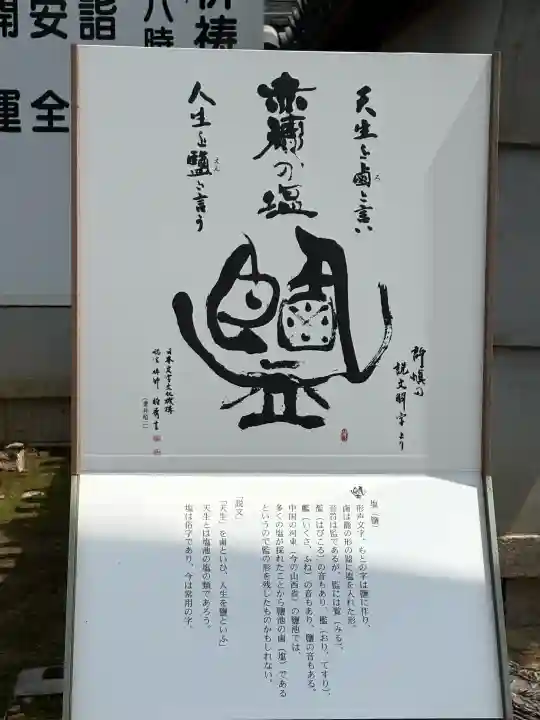 祈祷
八時
安全
開運
天生を鹵と言い
ろ
赤穂の塩
人生を鹽と言う
えん
鹽
許慎の
説文解字より
日本文字文化機構
塩（鹽）
形声文字。もとの字は鹽に作り、
鹵は籠の形の器に塩を入れた形。
音符は監であるが、監には覧（みる）、
濫（はびこる）の音もあり、檻（おり、てすり）、
艦（いくさ、ふね）の音もあり、鹽の音もある。
中国の河東（今の山西省）の鹽池では、
多くの塩が採れたことから鹽池の鹵（塩）である
というので監の形を残したものかもしれない。
「説文」
「天生」を鹵といひ、人生を鹽といふ」
天生とは塩池の塩の類であろう。
塩は俗字であり、今は常用の字。